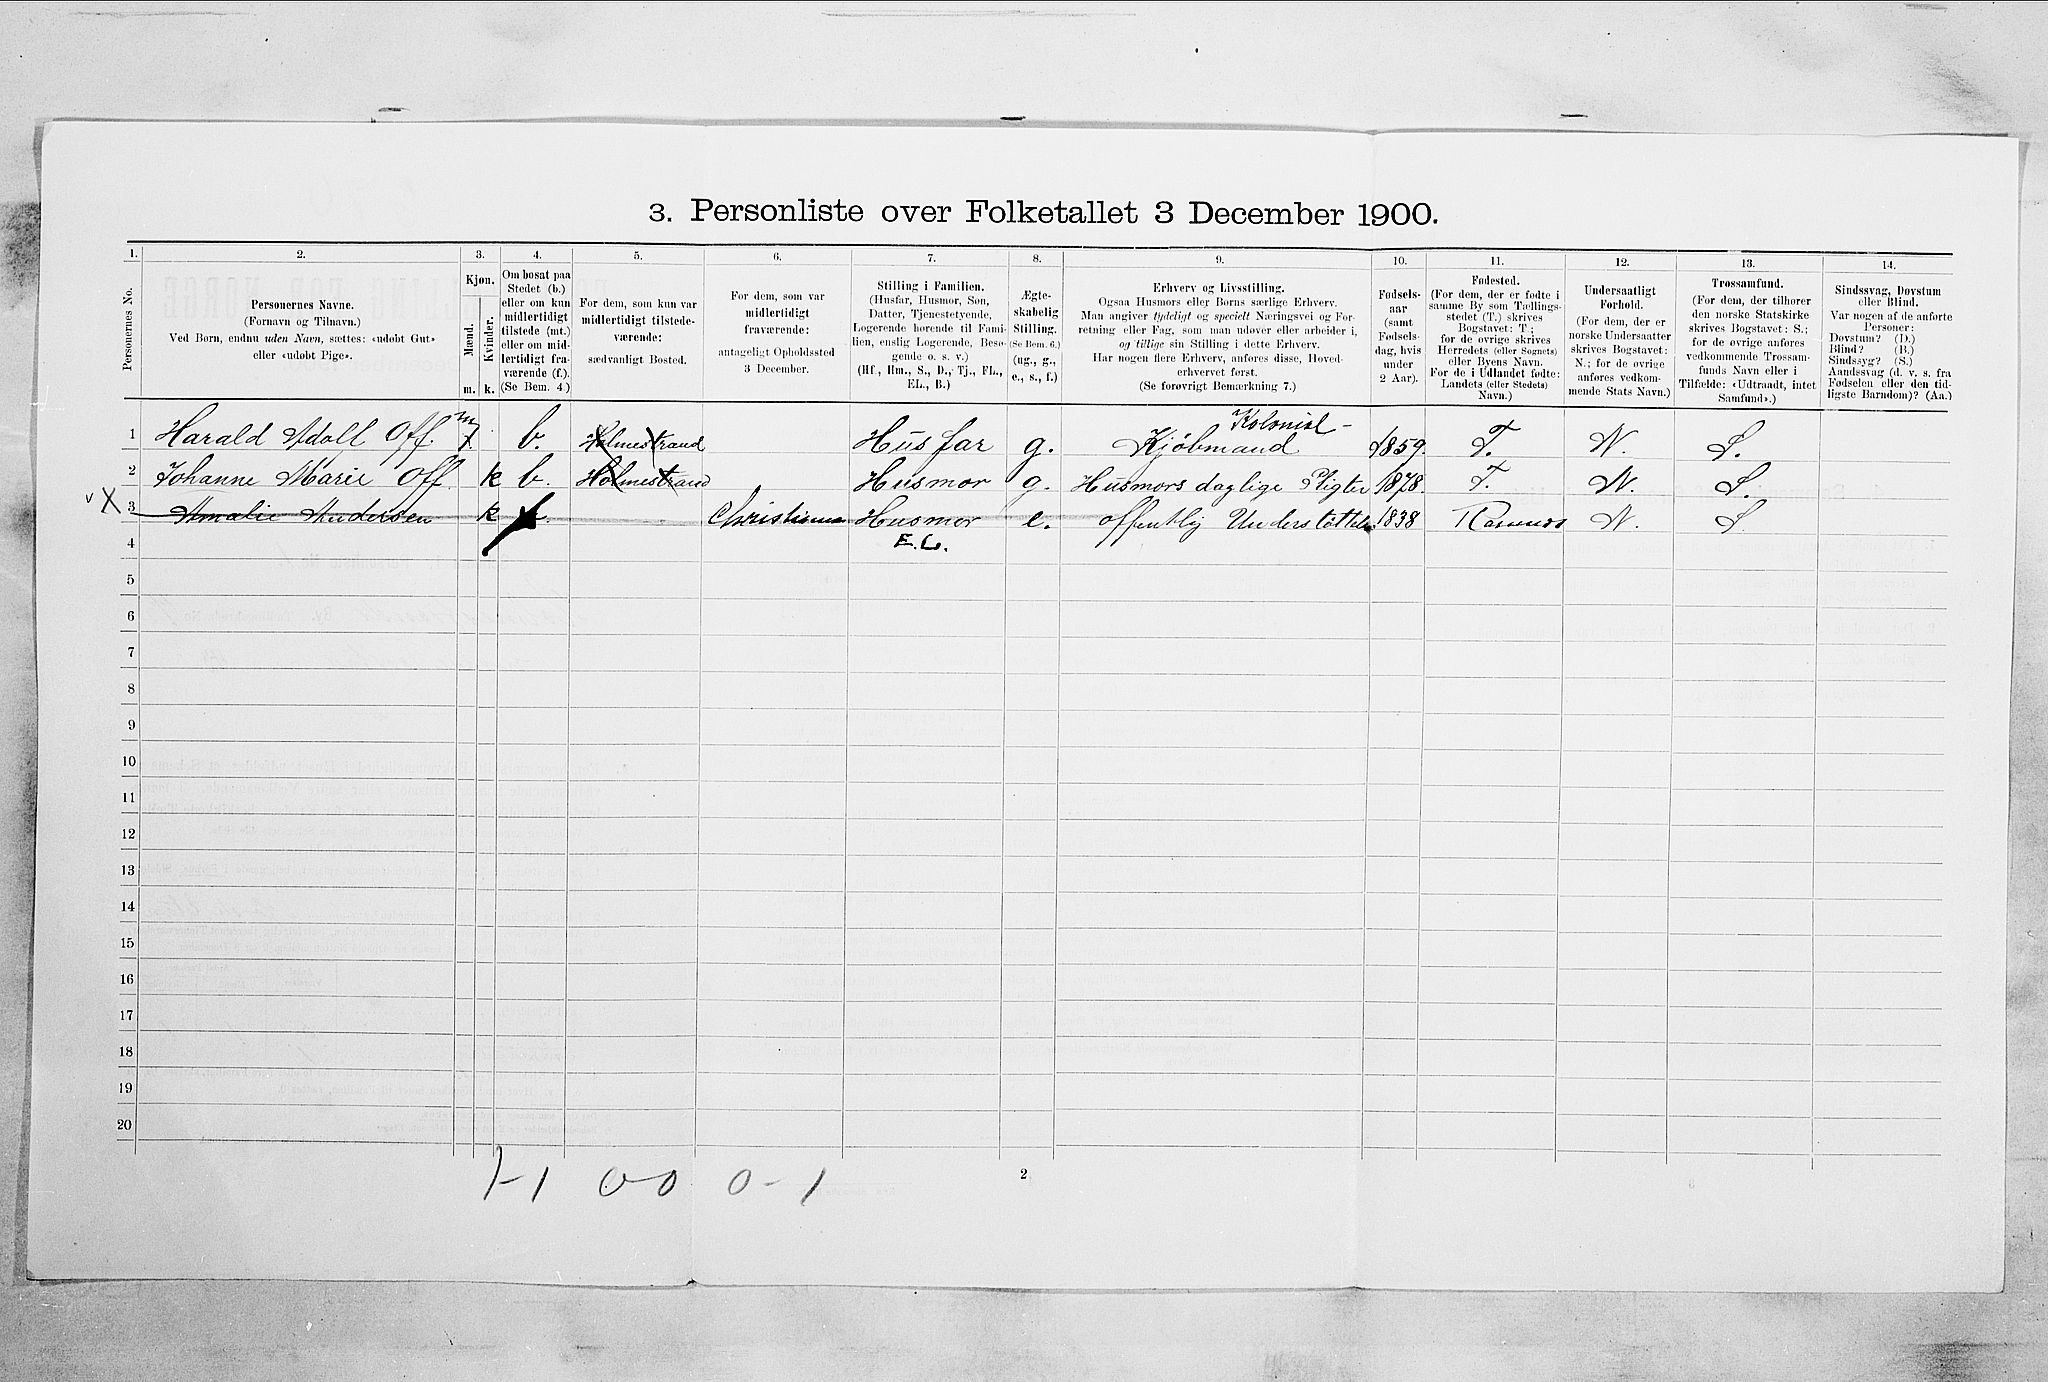 3. Personliste over Folketallet 3 December 1900.
1. 2. 3. 4. 5. 6. 7. 8. 9. 10. 11. 12. 13. 14.
Personernes No.
Personernes Navne.
(Fornavn og Tilnavn.)
Ved Børn, endnu uden Navn, sættes: «udøbt Gut»
eller «udøbt Pige».
Kjøn.
Mænd.
Kvinder.
m. k.
Om bosat paa
Stedet (b.)
eller om kun
midlertidigt
tilstede (mt.)
eller om mid-
lertidigt fra-
værende (f.).
(Se Bem. 4.)
For dem, som kun var
midlertidigt tilstede-
værende:
sædvanligt Bosted.
For dem, som var
midlertidigt
fraværende:
antageligt Opholdssted
3 December.
Stilling i Familien.
(Husfar, Husmor, Søn,
Datter, Tjenestetyende,
Logerende hørende til Fami-
lien, enslig Logerende, Besø-
gende o. s. v.)
(Hf., Hm., S., D., Tj., FL.,
EL., B.)
Ægte-
skabelig
Stilling.
(Se Bem. 6.)
(ug., g.,
e., s., f.)
Erhverv og Livsstilling.
Ogsaa Husmors eller Børns særlige Erhverv.
Man angiver tydeligt og specielt Næringsvei og For-
retning eller Fag, som man udøver eller arbeider i,
og tillige sin Stilling i dette Erhverv.
Har nogen flere Erhverv, anføres disse, Hoved-
erhvervet først.
(Se forøvrigt Bemærkning 7.)
Fødsels-
aar
(samt
Fødsels-
dag, hvis
under
2 Aar).
Fødested.
(For dem, der er fødte i
samme By som Tællings-
stedet (T.) skrives
Bogstavet: T.;
for de øvrige skrives
Herredets (eller Sognets)
eller Byens Navn.
For de i Udlandet fødte:
Landets (eller Stedets)
Navn.)
Undersaatligt
Forhold.
(For dem, der er
norske Undersaatter
skrives Bogstavet:
N.; for de øvrige
anføres vedkom-
mende Stats Navn.)
Trossamfund.
(For dem, der tilhører
den norske Statskirke
skrives Bogstavet: S.;
for de øvrige anføres
vedkommende Trossam-
funds Navn eller i
Tilfælde: «Udtraadt, intet
Samfund».)
Sindssvag, Døvstum
eller Blind.
Var nogen af de anførte
Personer:
Døvstum? (D.)
Blind? (B.)
Sindssyg? (S.)
Aandssvag (d. v. s. fra
Fødselen eller den tid-
ligste Barndom)? (Aa.)
1 Harald Adolf Off. m b. Holmestrand Husfar g. Kolonial- Kjøbmand 1859. T. N. S.
2 Johanne Marie Off k b. Holmestrand Husmor g. Husmors daglige Pligter 1878. T. N. S.
X 3 Amalie Andersen k Christiania Husmor e. offentlig Understøttelse 1838 N. S.
4 E.L.
5
6
7
8
9
10
11
12
13
14
15
16
17
18
19
20
1-1 0-0 0-1
2